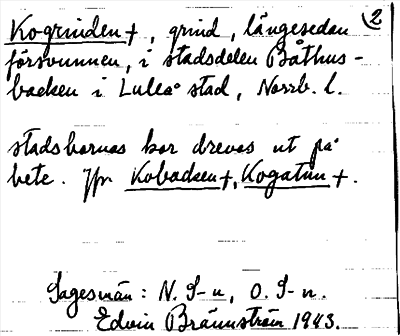 Kogrinden +, grind, längesedan (2
försvunnen, i stadsdelen Båthus-
backen i Luleå stad, Norrb. l.
stadsbornas kor drevos ut på
bete. Jfr Kobacken +, Kogatan +.
Sagesmän: N. S-n, O. S-n.
Edvin Brännström 1943.